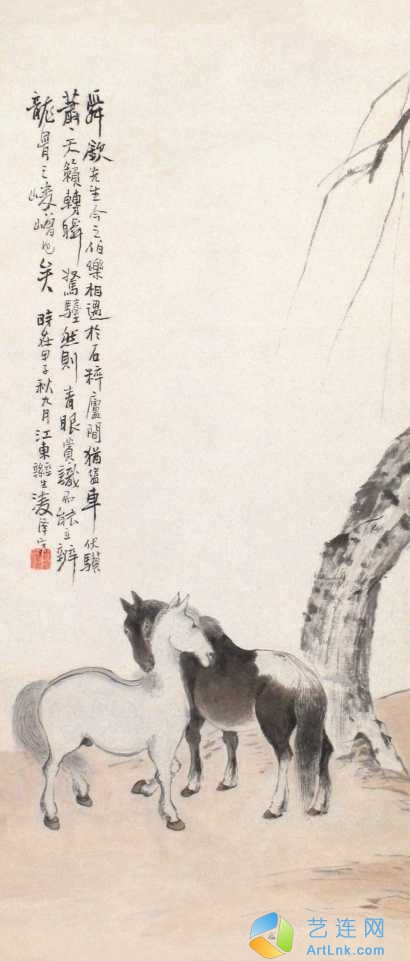 舜欽先生今之伯樂相遇於石廬間猶車伏驥
蕭〻天籟轉瞬然則青眼賞識能立辨
龍骨之崚嶒也矣時在甲子秋九月江東生凌
艺连网
ArtLnk.com